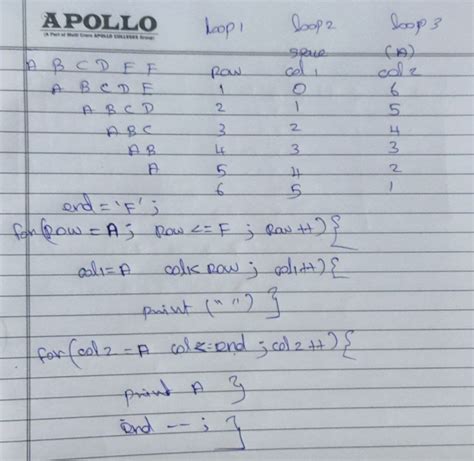 APOLLO
(A Part of Multi Crore APOLLO COLLEGES Group)
Loop 1 Loop 2 Loop 3
space (A)
Row col1 col2
A B C D E F
1 0 6
A B C D E
2 1 5
A B C D
3 2 4
A B C
4 3 3
A B
5 4 2
A
6 5 1
end = 'F' ;
for(row = A ; row <= F ; row ++) {
col1 = A col< row ; col1++) {
print (" ") }
for(col2 = A col<=end ; col2++) {
print A }
end -- ; }